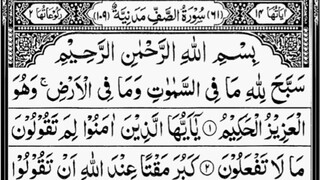 اٰیَاتُهَا ۱۴ (۶۱) سُوْرَةُ الصَّفِّ مَدَنِيَّةٌ (۱۰۹) رُكُوْعَاتُهَا ۲
بِسْمِ اللّٰهِ الرَّحْمٰنِ الرَّحِيْمِ
سَبَّحَ لِلّٰهِ مَا فِى السَّمٰوٰتِ وَمَا فِى الْاَرْضِ ۚ وَهُوَ
الْعَزِيْزُ الْحَكِيْمُ ۝۱ يٰۤاَيُّهَا الَّذِيْنَ اٰمَنُوْا لِمَ تَقُوْلُوْنَ
مَا لَا تَفْعَلُوْنَ ۝۲ كَبُرَ مَقْتًا عِنْدَ اللّٰهِ اَنْ تَقُوْلُوْا